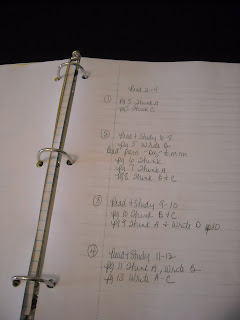 Read 2-4
① pg 3 Think A
pg 5 Think C
② Read + Study 6-8
pg 5 Write B
pg 6 Think
pg 7 Think A
pg 8 B + C
③ Read + Study 9-10
pg 10 Think B + C
pg 9 Think A + Write D
④ Read + Study 11-12
pg 11 Think A, Write B
pg 13 Write A-C